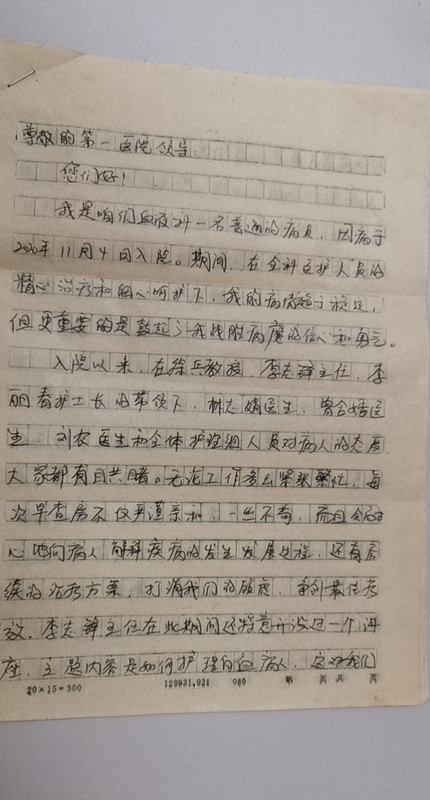 尊敬的第一医院领导:
您们好!
我是咱们血液科一名普通的病员,因病于
2020年11月4日入院。期间,在全科医护人员的
精心治疗和细心呵护下,我的病情趋于稳定,
但更重要的是鼓起了我战胜病魔的信心和勇气。
入院以来,在徐兵教授、李志锋主任、李
丽春护士长的带领下,林志娟医生、曾合婧医
生、刘农医生和全体护理组人员对病人的态度
大家都有目共睹。无论工作多么紧张繁忙,每
次早查房不仅严谨亲和,一丝不苟,而且会耐
心地向病人解释疾病的发生发展过程,还有后
续的治疗方案,打消我们的顾虑,争创最佳疗
效。李志锋主任在此期间还特意开设过一个讲
座,主题内容是如何护理白血病人,这对我们
20×15=300 128931.921 080 第 页 共 页